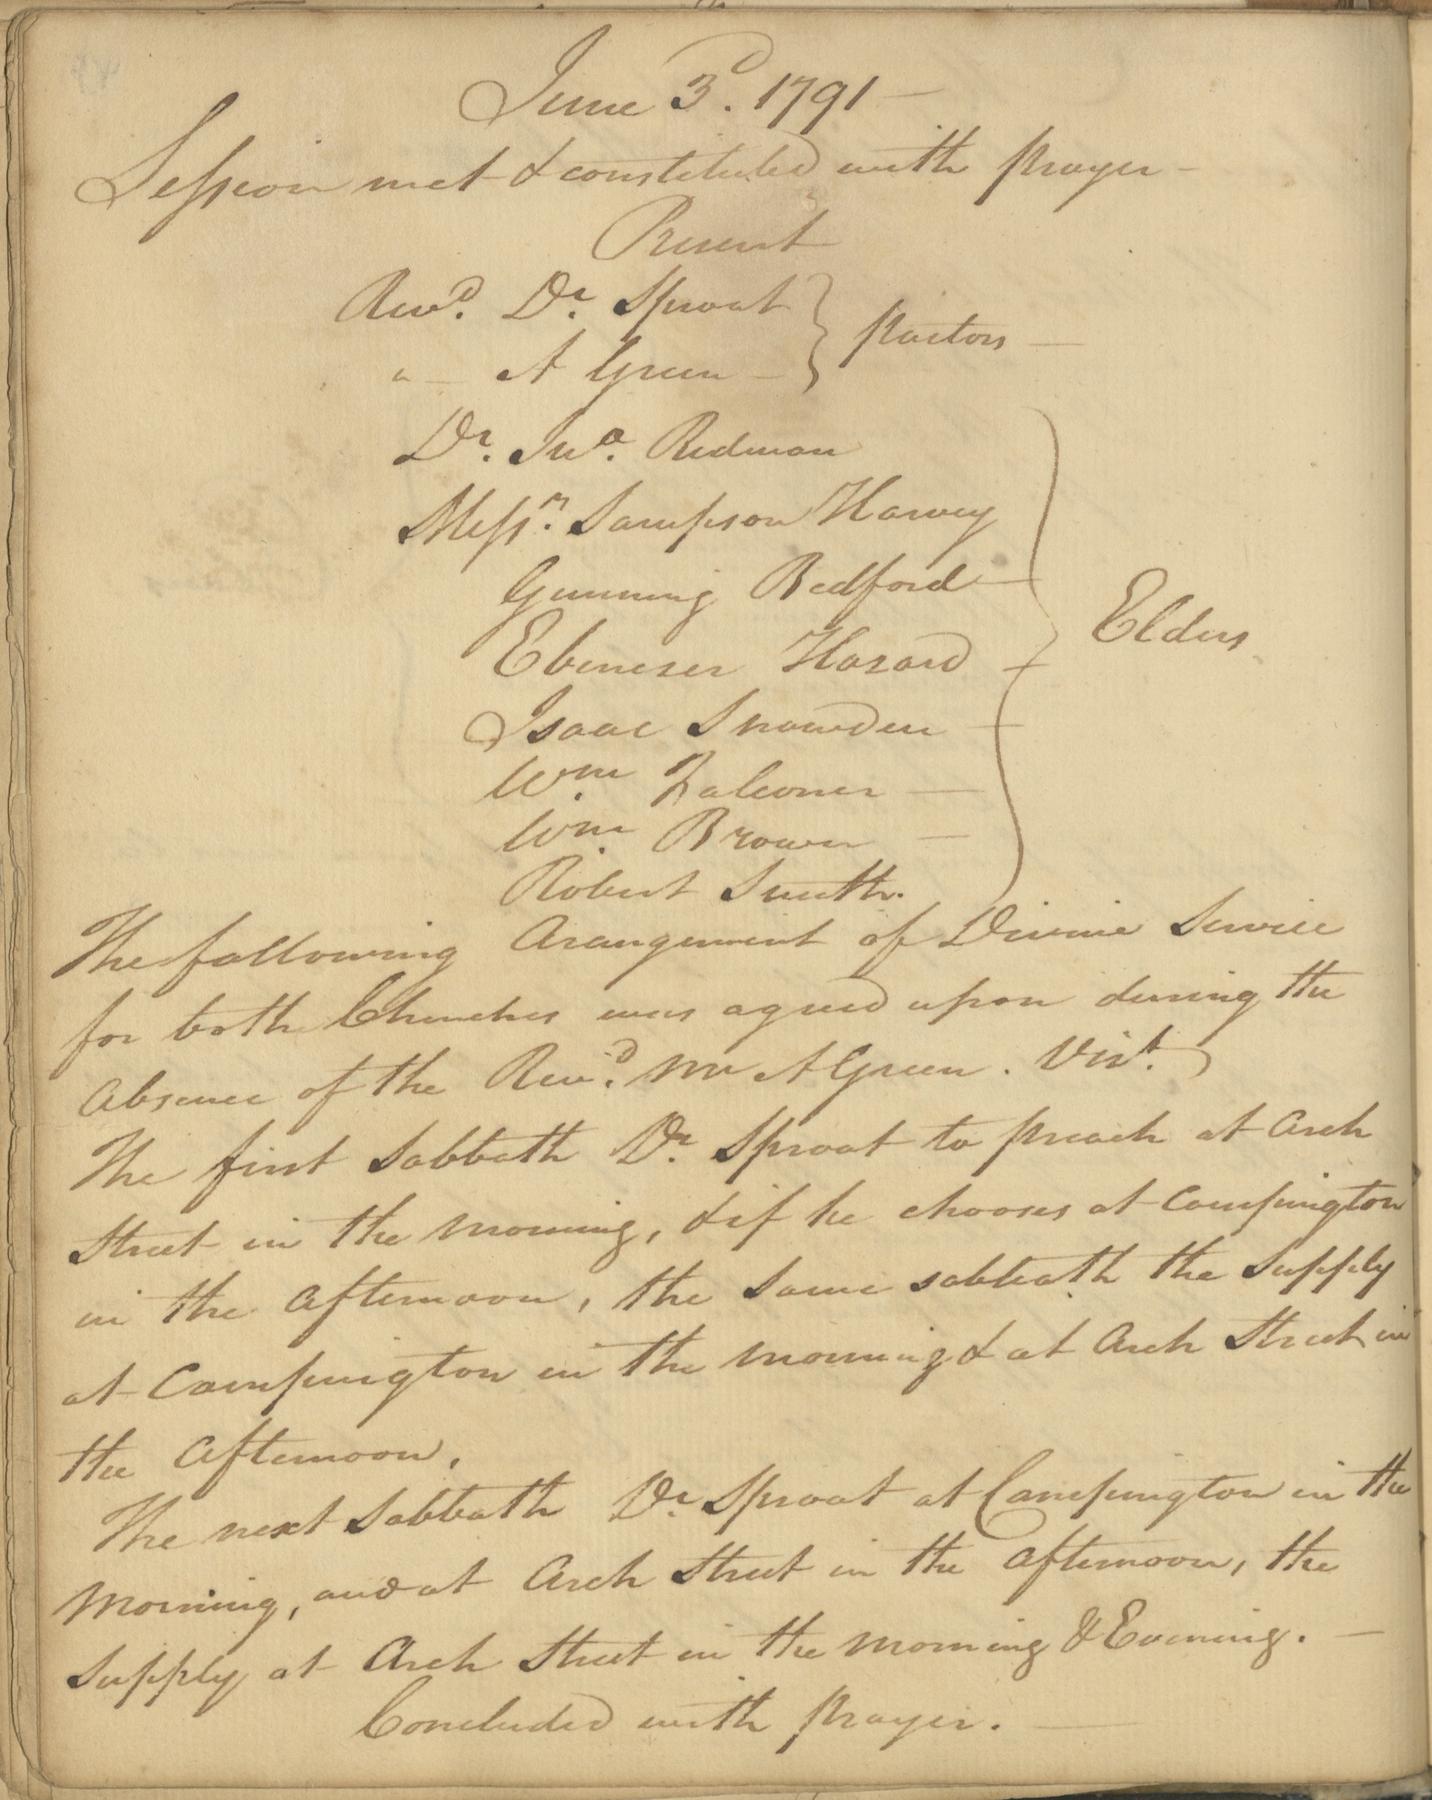 June 3d. 1791 —
Session met & constituted with prayer —
Present
Revd. Dr. Sproat } pastors —
" — A Green —
Dr. Jno. Redman
Messrs. Sampson Harvey
Gunning Bedford — } Elders
Ebenezer Hazard —
Isaac Snowden —
Wm. Falconer —
Wm. Brown —
Robert Smith.
The following Arangement of Divine Service
for both Churches was agreed upon during the
absence of the Revd. Mr A Green. Vizt.
The first Sabbath Dr. Sproat to preach at Arch
Street in the morning, & if he chooses at Campington
in the afternoon, the same sabbath the Supply
at Campington in the morning & at Arch Street in
the afternoon.
The next Sabbath Dr. Sproat at Campington in the
Morning, and at Arch Street in the afternoon, the
Supply at Arch Street in the morning & Evening. —
Concluded with prayer. —